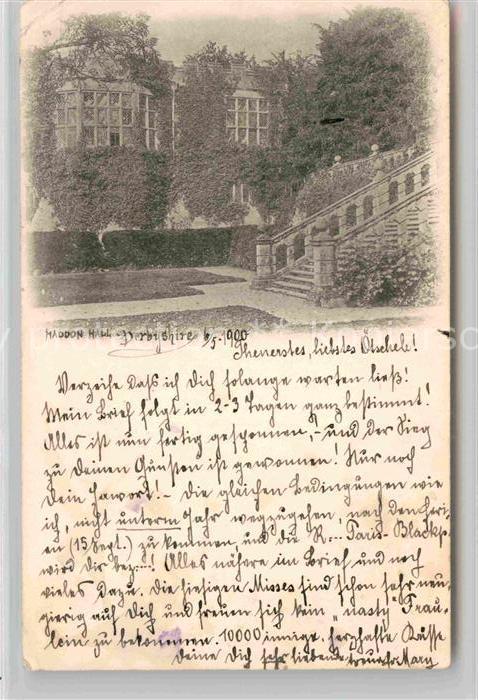 HADDON HALL Derbyshire 6/5. 1900
Theuerstes, liebstes Ötschele!
Verzeihe daß ich Dich solange warten ließ!
Mein Brief folgt in 2-3 Tagen ganz bestimmt!
Alles ist nun fertig gesponnen, - und der Sieg
zu Deinen Gunsten ist gewonnen! Nur noch
Dein Jawort! - Die gleichen Bedingungen wie
ich, nicht unterm Jahr wegzugehen, nach den Feri-
en (15 Sept.) zu kommen und die R... Paris-Blackp.
wird Dir bez...! Alles nähere im Brief und noch
vieles dazu. Die hiesigen Misses sind schon sehr neu-
gierig auf Dich und freuen sich kein "nasty" Fräu-
lein zu bekommen. 10000 innige, herzhafte Küsse
Deine Dich sehr liebende, treue Mary